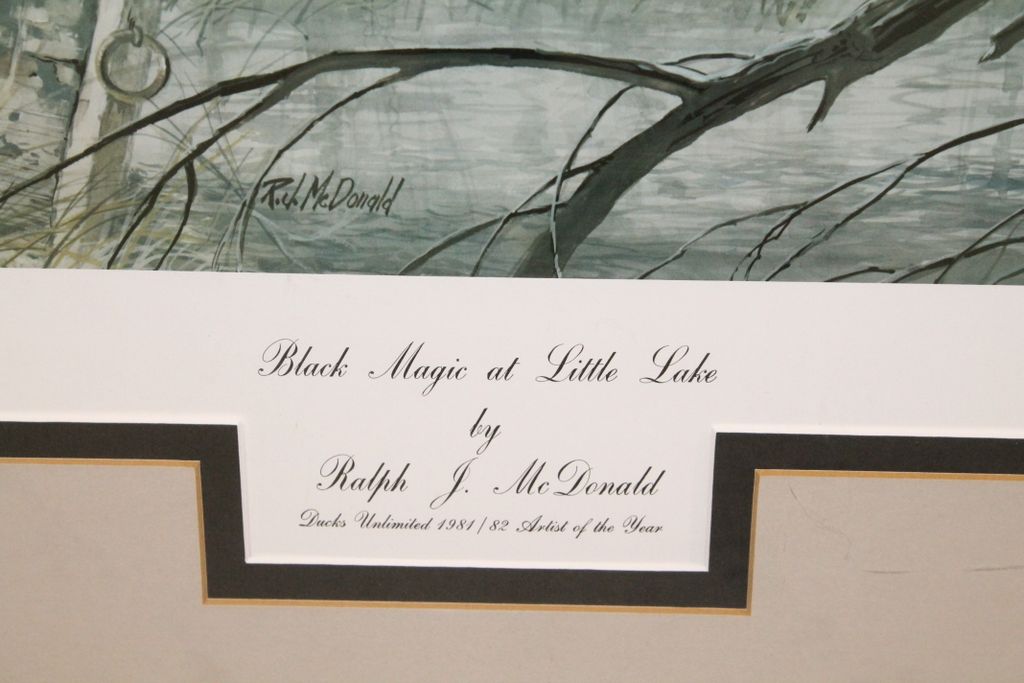 R.J. McDonald
Black Magic at Little Lake
by
Ralph J. McDonald
Ducks Unlimited 1981/82 Artist of the Year